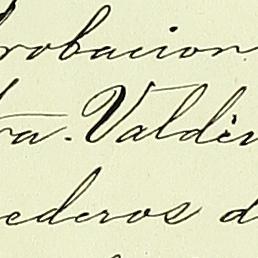 robacion
ra. Valdè
ederos d